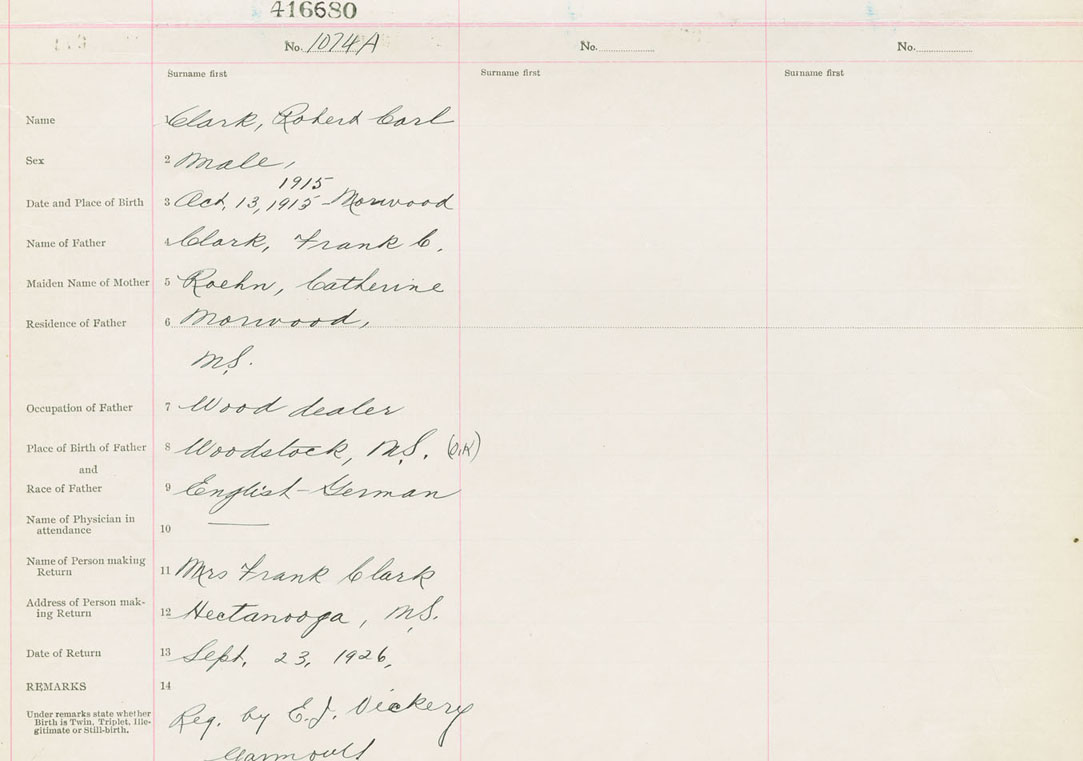 416680
No. 1074A No. No.
Surname first Surname first Surname first
Name 1 Clark, Robert Carl
Sex 2 Male,
1915
Date and Place of Birth 3 Oct. 13, 1915 - Norwood
Name of Father 4 Clark, Frank C.
Maiden Name of Mother 5 Roehn, Catherine
Residence of Father 6 Norwood,
N.S.
Occupation of Father 7 Wood dealer
Place of Birth of Father 8 Woodstock, N.S. (O.K)
and
Race of Father 9 English-German
Name of Physician in
attendance 10
Name of Person making
Return 11 Mrs Frank Clark
Address of Person mak-
ing Return 12 Hectanooga, N.S.
Date of Return 13 Sept. 23, 1926,
REMARKS 14
Under remarks state whether
Birth is Twin, Triplet, Ille-
gitimate or Still-birth.
Reg. by E.J. Vickery
Yarmouth